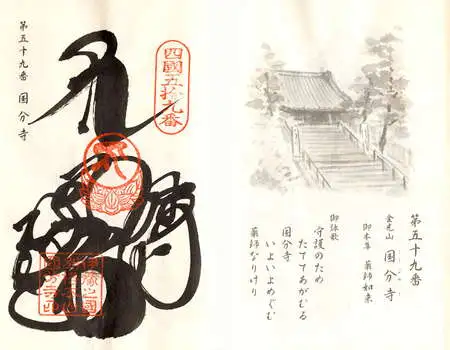 第五十九番
金光山 国分寺
御本尊 薬師如来
御詠歌
守護のため
たててあがむる
国分寺
いよいよめぐむ
薬師なりけり
四國五拾九番
第五十九番 国分寺